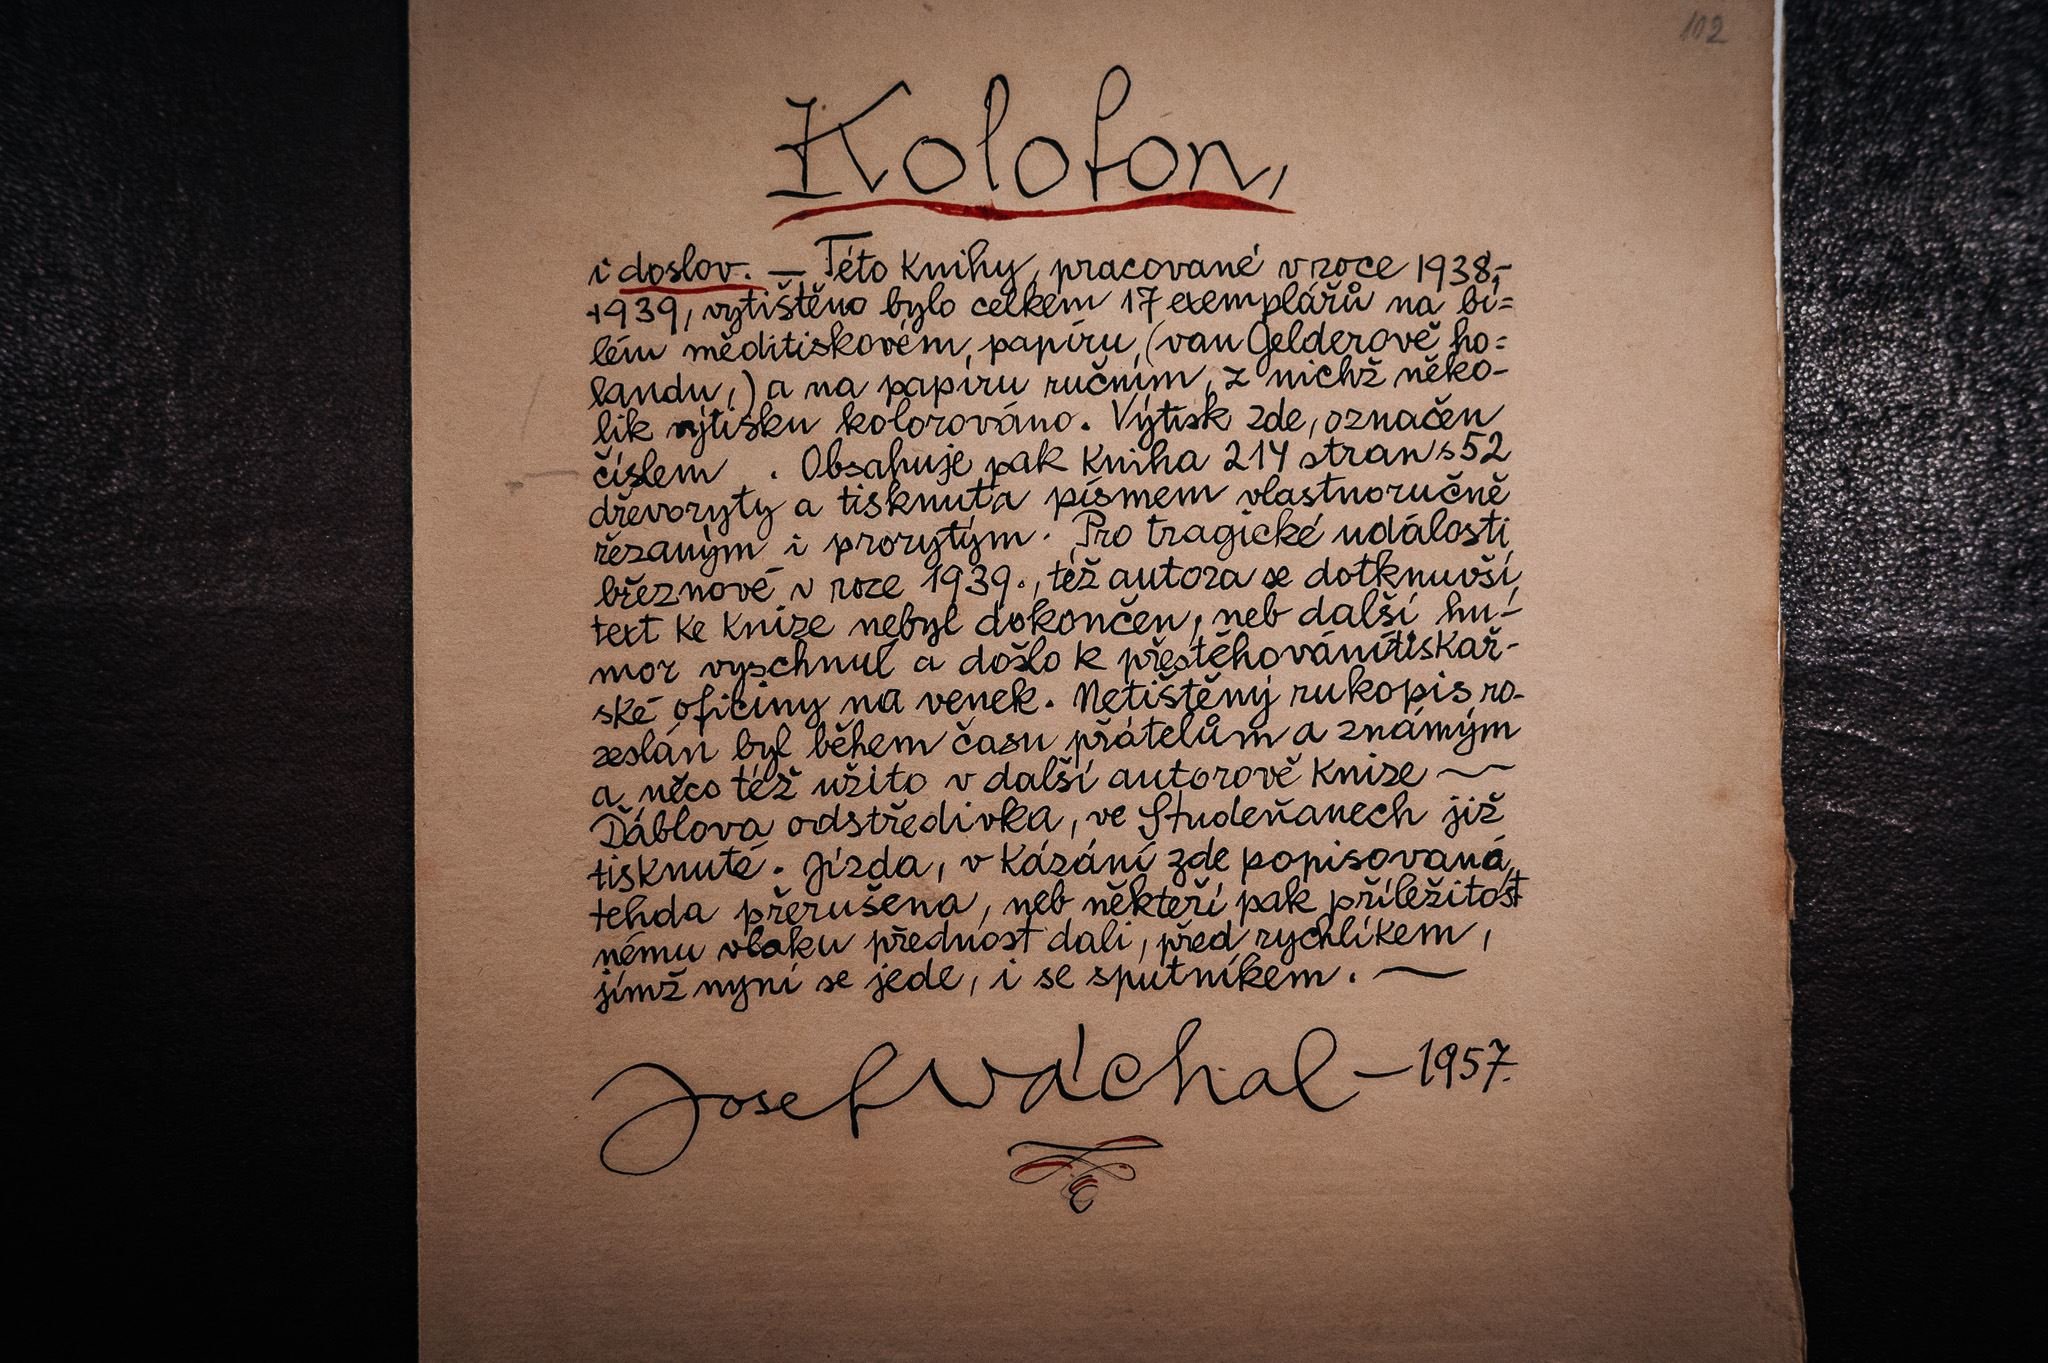 102
Kolofon,
i doslov. — Této knihy, pracované v roce 1938,-
-1939, vytištěno bylo celkem 17 exemplářů na bí=
lém měditiskovém papíru, (van Gelderově ho=
landu,) a na papíru ručním, z nichž něko-
lik výtisku kolorováno. Výtisk zde, označen
číslem . Obsahuje pak kniha 214 stran s 52
dřevoryty a tisknuta písmem vlastnoručně
řezaným i prorytým. Pro tragické události
březnové v roce 1939., též autora se dotknuvší,
text ke knize nebyl dokončen, neb další hu-
mor vyschnul a došlo k přestěhování tiskař-
ské oficiny na venek. Netištěný rukopis ro-
zeslán byl během času přátelům a známým
a něco též užito v další autorově knize ~
Ďáblova odstředivka, ve Studeňanech již
tisknuté. Jízda, v Kázání zde popisovaná,
tehda přerušena, neb někteří pak příležitost
nému vlaku přednost dali, před rychlíkem,
jímž nyní se jede, i se sputníkem. ~
Josef Váchal — 1957.